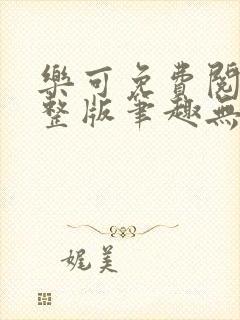 樂可免費閱
整版筆趣無
娓美